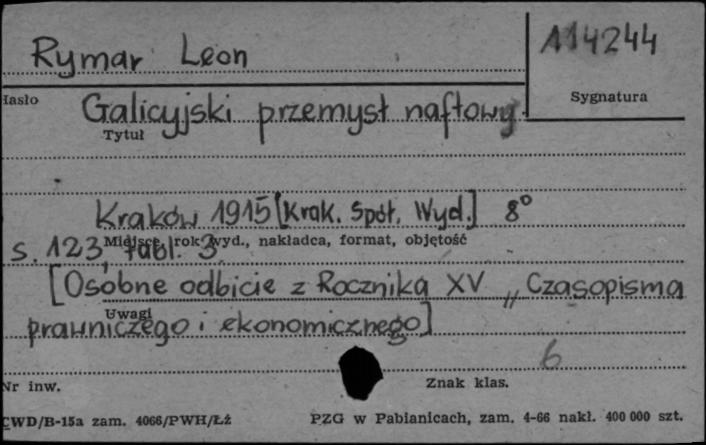 Rymar Leon
114244
Hasło
Sygnatura
Galicyjski przemysł naftowy
Tytuł
Kraków 1915 [Krak. Spół. Wyd.] 8°
Miejsce, rok wyd., nakładca, format, objętość
s. 123, tabl. 3
[Osobne odbicie z Rocznika XV „Czasopisma
Uwagi
prawniczego i ekonomicznego]
6
Nr inw.
Znak klas.
CWD/B-15a zam. 4066/PWH/Łź
PZG w Pabianicach, zam. 4-66 nakł. 400 000 szt.